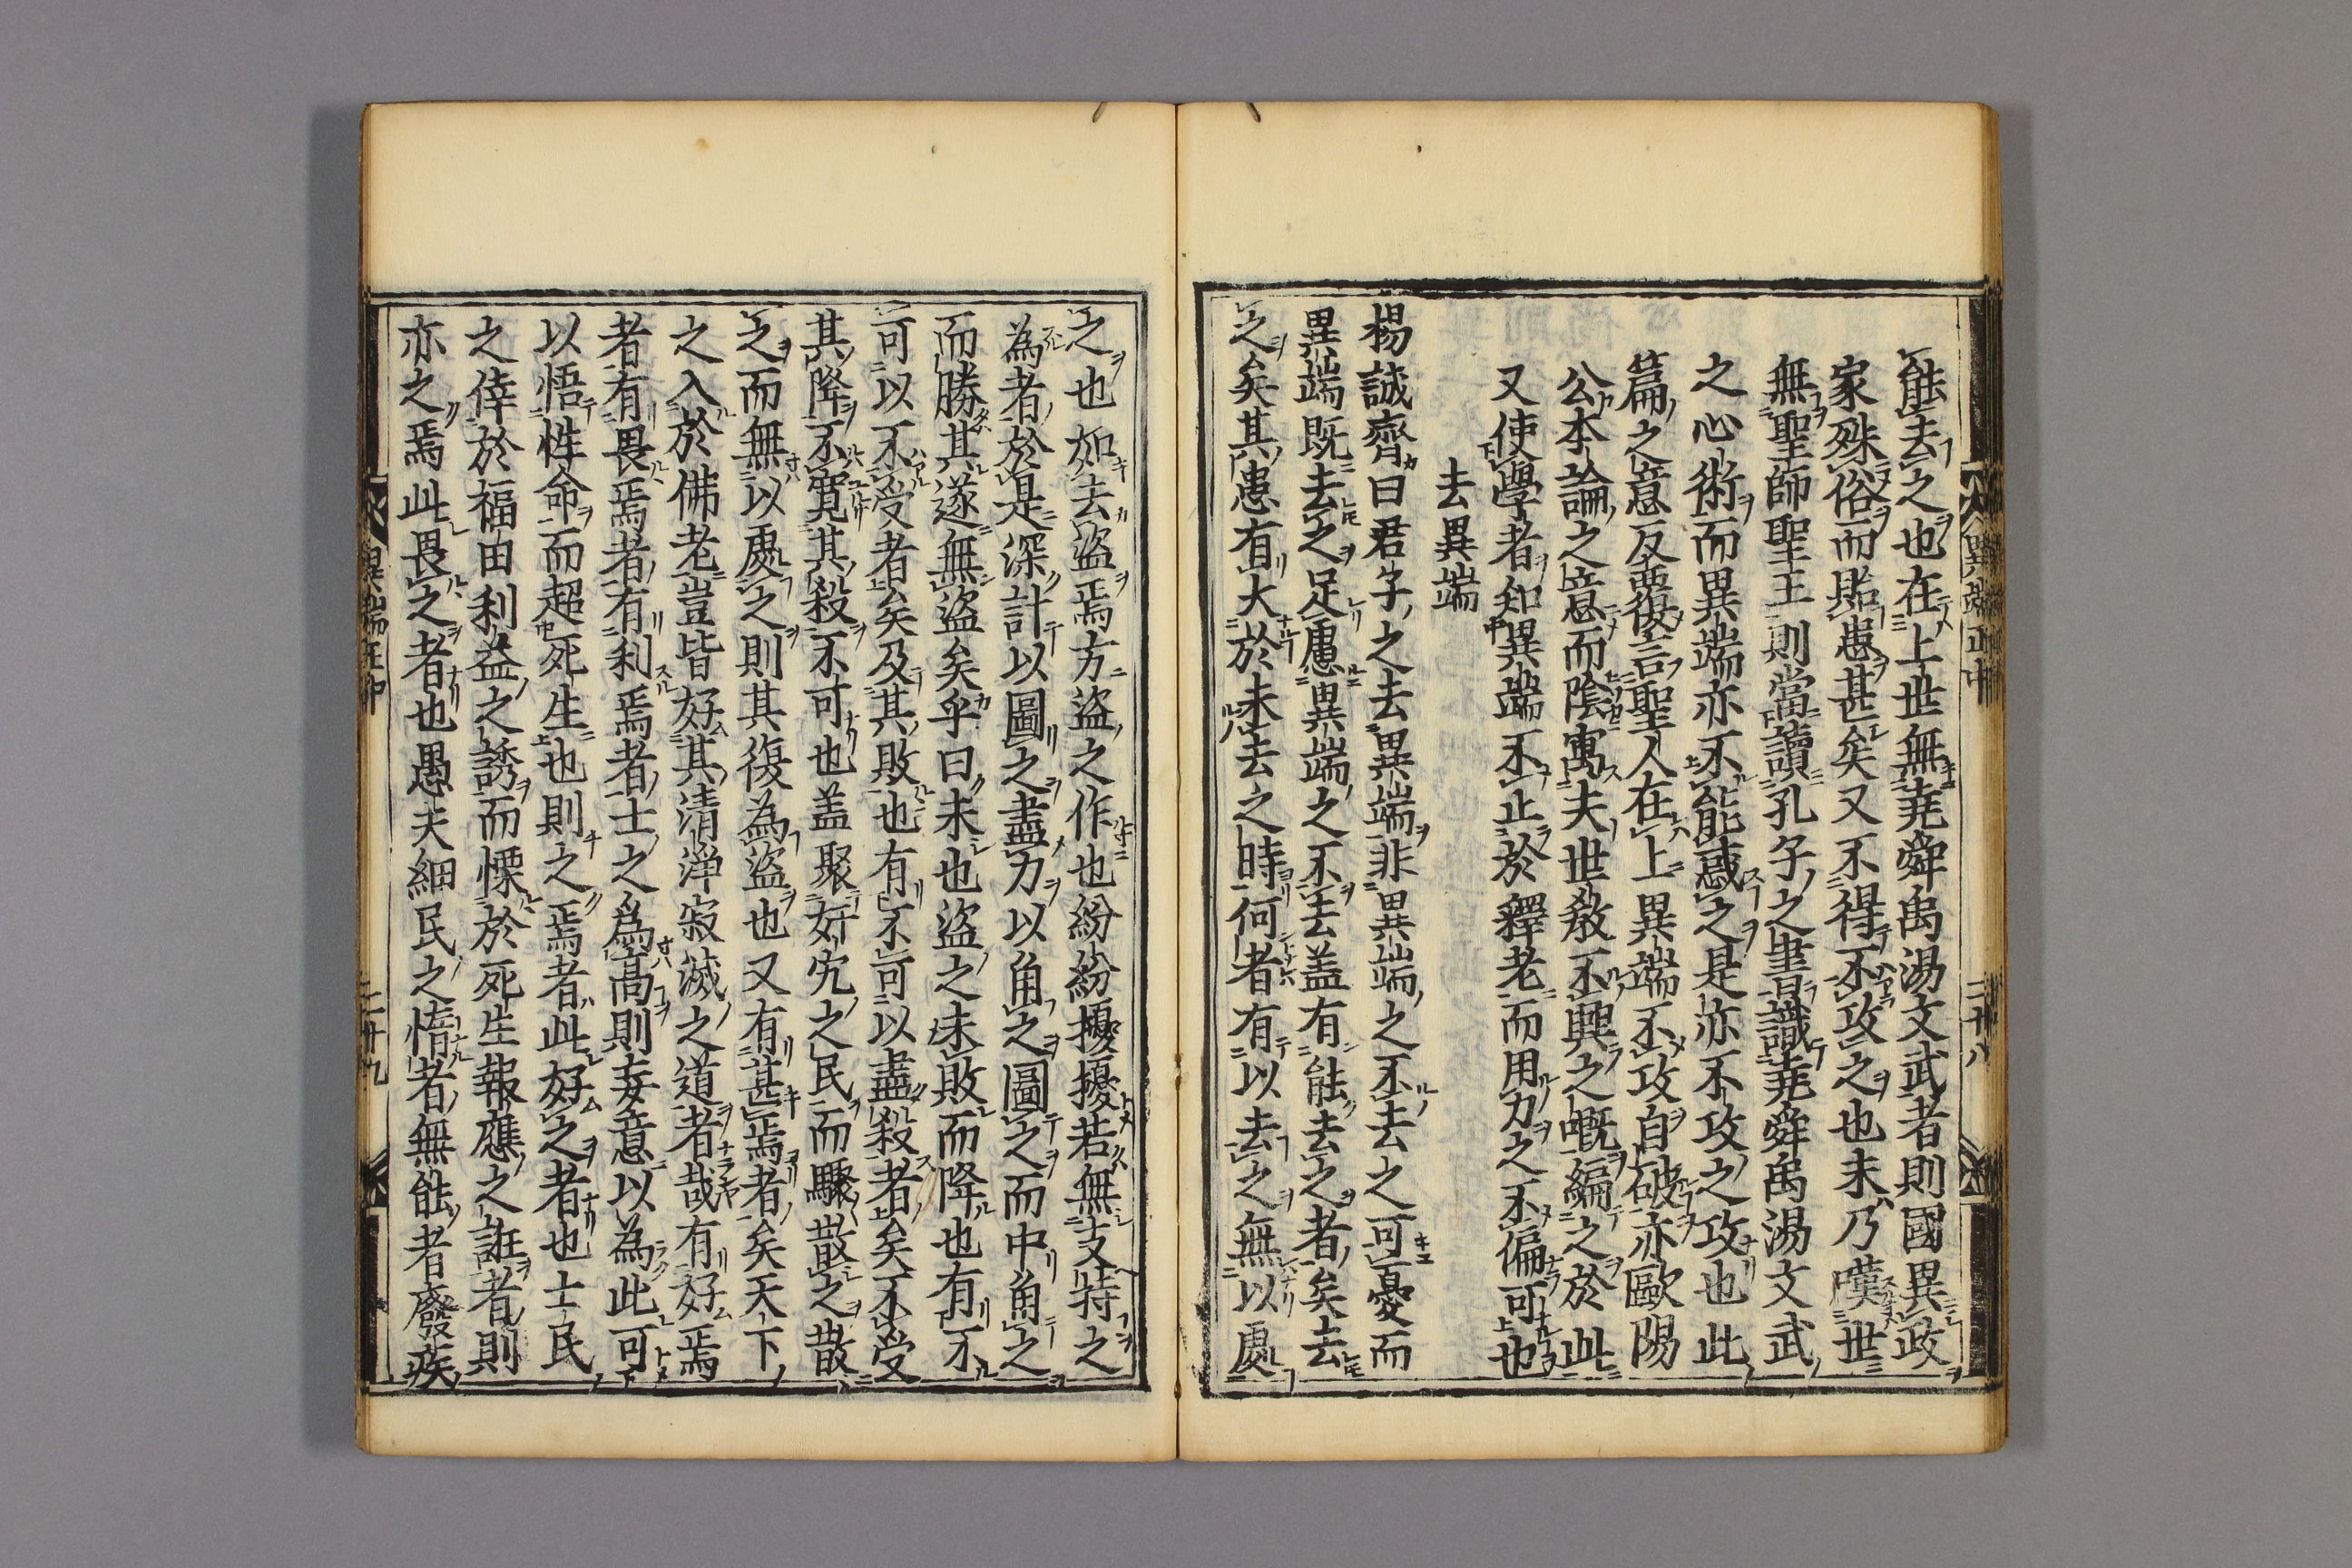 能去之也在上世無堯舜禹湯文武者則國異政
家殊俗而貽患甚矣又不得不攻之也未乃嘆世
無聖師聖王則當讀孔子之書識堯舜禹湯文武
之心術而異端亦不能惑之是亦不攻之攻也此
篇之意反覆言聖人在上異端不攻自破亦歐陽
公本論之意而陰寓夫世教不興之嘅編之於此
又使學者知異端不止於釋老而用力之不偏可也
去異端
楊誠齋曰君子之去異端非異端之不去之可憂而
異端既去之足慮異端之不去盖有能去之者矣去
之矣其患有大於未去之時何者有以去之無以處
異端正中
二十八
之也如去盜焉方盜之作也紛紛擾擾若無支特之
為者於是深計以圖之盡力以角之圖之而中角之
而勝其遂無盜矣乎曰未也盜之未敗而降也有不
可以不受者矣及其敗也有不可以盡殺者矣不受
其降不寬其殺不可也盖聚奸宄之民而驟散之散
之而無以處之則其復為盜也又有甚焉者矣天下
之入於佛老豈皆好其清淨寂滅之道者哉有好焉
者有畏焉者有利焉者士之爲高則妄意以為此可
以悟性命而超死生也則之焉者此好之者也士民
之倖於福由利益之誘而慄於死生報應之誑者則
亦之焉此畏之者也愚夫細民之惰者無能者廢疾
異端正中
二十九